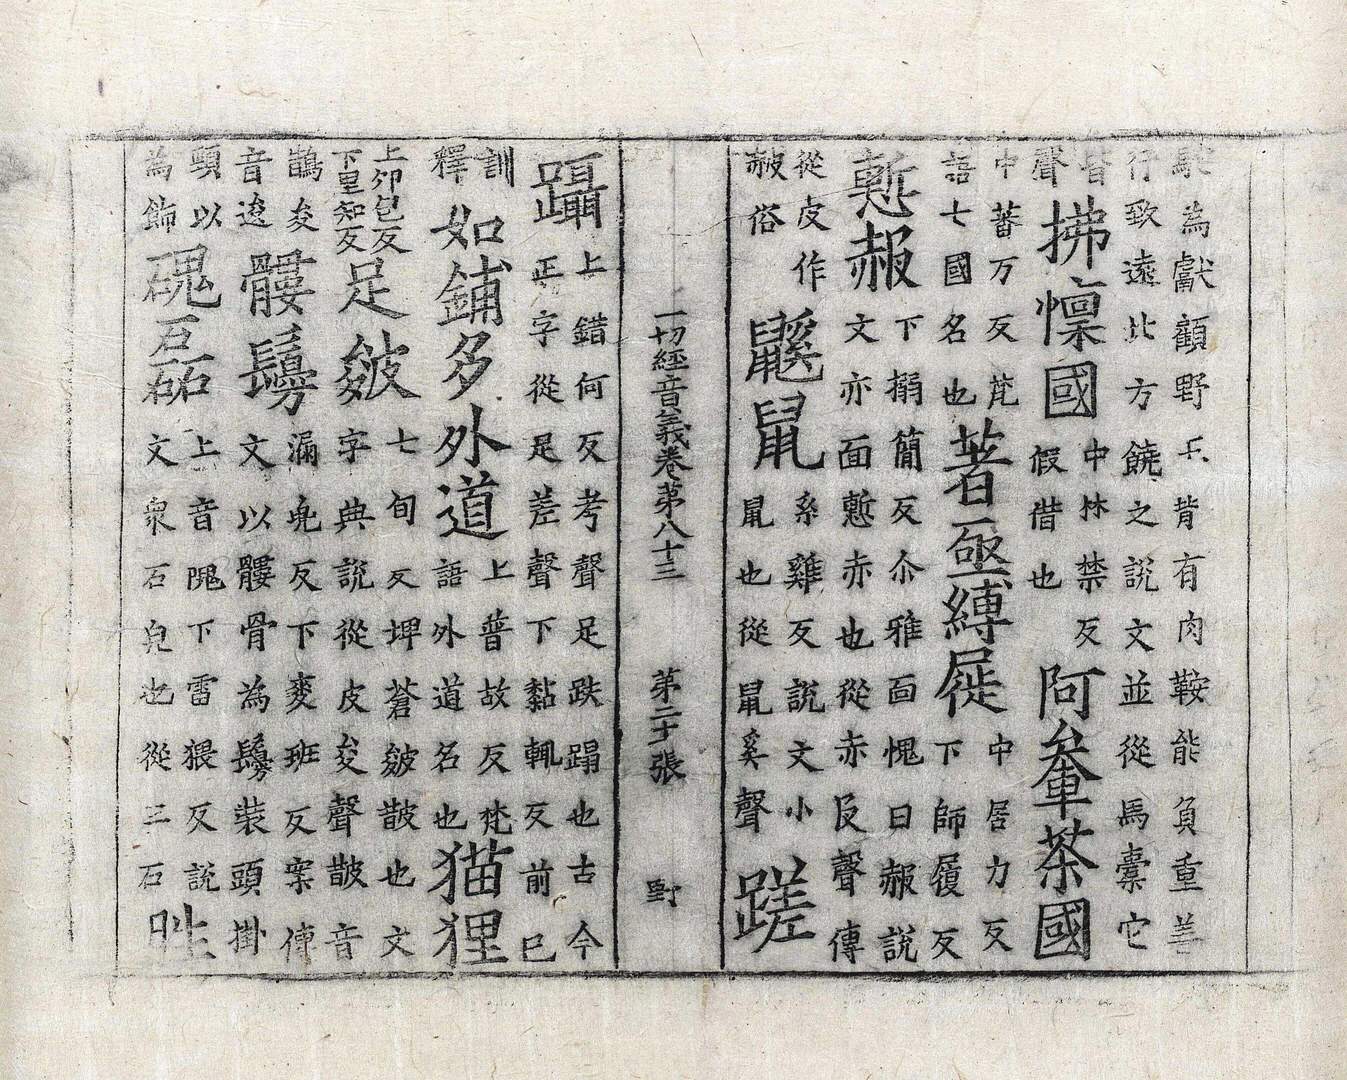 駝為獻顧野王背有肉鞍能負重善
行致遠北方饒之說文並從馬橐它
皆聲 拂懍國 中林禁反假借也 阿輋荼國
中蕃万反梵語七國名也 著亟縛屣 中居力反下師履反
慙赧 下搦簡反尒雅面愧曰赧說文亦面慙赤也從赤𠬝聲傳
從皮作赧俗 鼷鼠 系雞反說文小鼠也從鼠奚聲 蹉
一切經音義卷第八十三 第二十張 野
躡 上錯何反考聲足跌蹋也古今正字從足差聲下黏輒反前已
訓釋 如鋪多外道 上普故反梵語外道名也 猫狸
上卯包反下里知反 足皴 七旬反埤蒼皴皵也文字典說從皮夋聲皵音
鵲夋音逡 髏鬘 漏兜反下麥班反案傳文以髏骨為鬘裝頭掛
頸以為飾 磈磊 上音隗下雷猥反說文衆石皃也從三石 眭